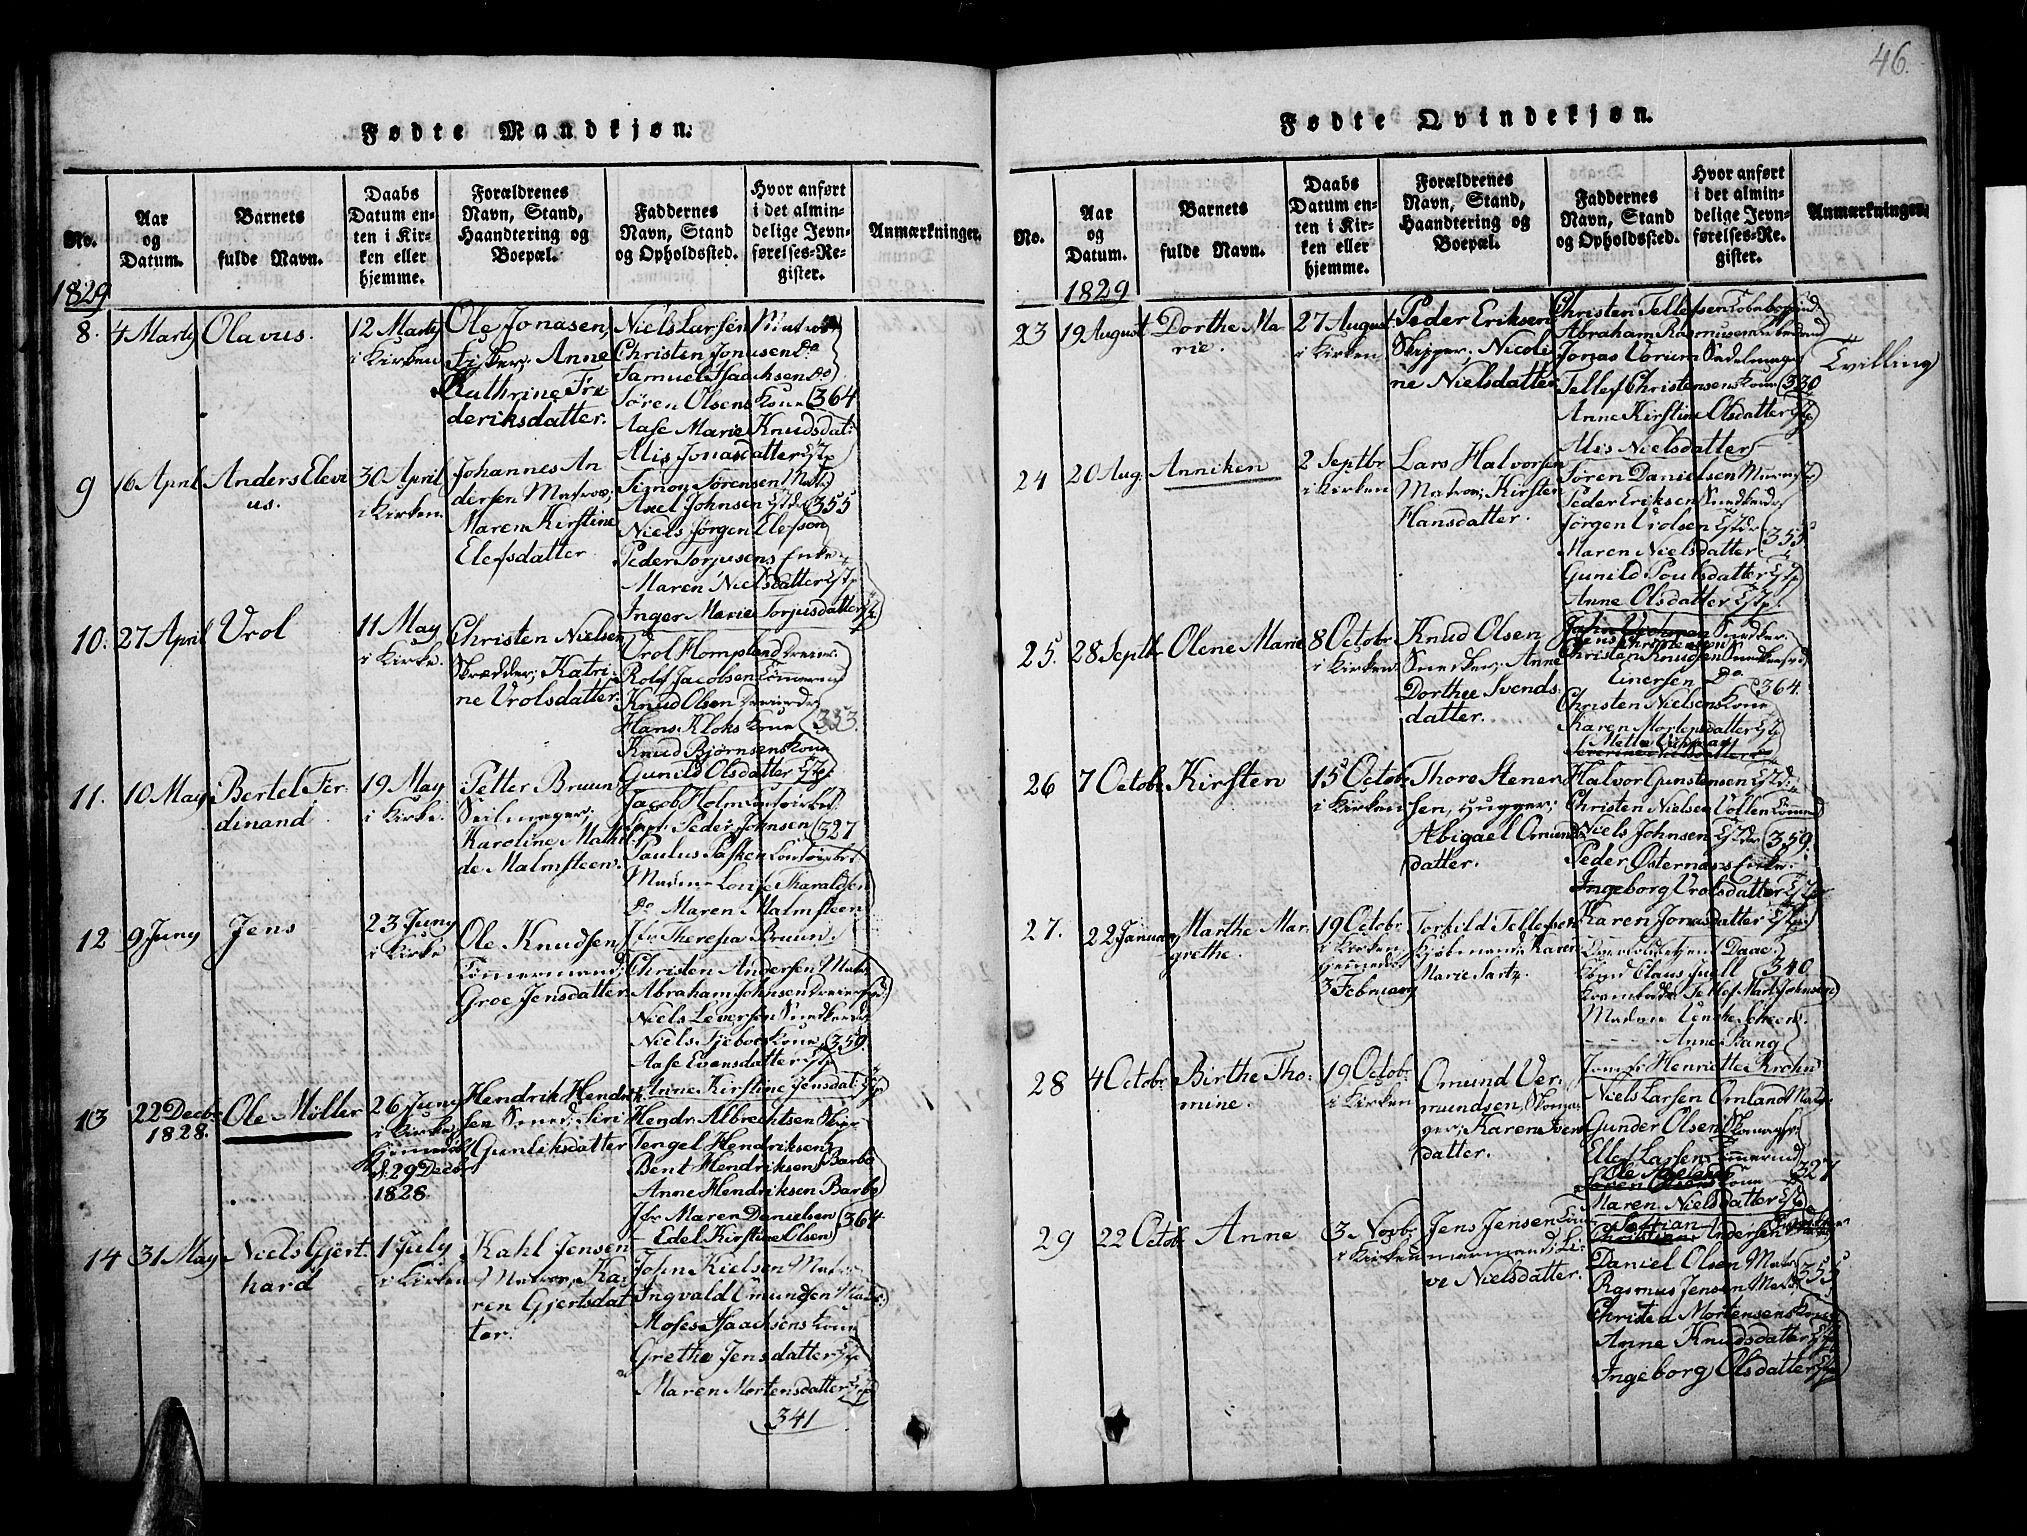 46.
Fødte Mandkjøn.
No.
Aar
og
Datum.
Barnets
fulde Navn.
Daabs
Datum en-
ten i Kir-
ken eller
hjemme.
Forældrenes
Navn, Stand,
Haandtering og
Boepæl.
Faddernes
Navn, Stand
og Opholdssted.
Hvor anført
i det almin-
delige Jevn-
førelses-Re-
gister.
Anmærkninger.
1829
8.
4 Marty
Olavus.
12 Marty
i Kirken
Ole Jonasen,
Fisker; Anne
Kathrine Fre
deriksdatter.
Niels Larsen Matros
Christen Jonasen Do
Samuel Isaachsen Do
Søren Olsens Kone 364
Aase Marie Knudsdat:
Alis Jonasdatter
9
16 April
Anders Elevi
us.
30 April
i Kirken.
Johannes An
dersen Matros;
Maren Kirstine
Elefsdatter
Simon Sørensen Mat
Axel Johnsen 355
Niels Jørgen Elefson
Peder Torjusens Enke
Maren Nielsdatter
Inger Marie Torjusdatter
10.
27 April
Vrol
11 May
i Kirke.
Christen Nielsen
Skrædder; Katri
ne Vrolsdatter.
Vrol Hompland
Rolf Jacobsen
Knud Olsen
Hans Kloks Kone 353.
Knud Bjørnsens Kone
Gunild Olsdatter
11.
10 May
Bertel Fer
dinand
19 May
i Kirke.
Petter Bruun
Seilmager;
Karoline Mathil
de Malmsteen.
Jacob Holm
Peder Johnsen 327
Paulus Pasken
Madm Louise Tharaldsen
Do Maren Malmsteen
Jfr Theresa Bruun.
12
9 Juny
Jens
23 Juny
i Kirke
Ole Knudsen
Tømermand;
Groe Jensdatter
Christen Andersen Mat
Abraham Johnsen
Niels Leversen
Niels Tjeboes Kone 359.
Aase Evensdatter
Anne Kirstine Jensdat:
13
22 Decbr
1828.
Ole Møller
26 Juny
i Kirke
29 Decbr
1828
Hendrik Hendrik
sen Smed; Siri
Gunliksdatter
Hendr Albrechtsen
Tengel Hendriksen
Bent Hendriksen Barbo
Anne Hendriksen Barbo
Jfr Maren Danielsen 364
– Edel Kirstine Olsen
14
31 May
Niels Gjert
hard
1 July
i Kirken
Kahl Jensen
Matros; Ka
ren Gjertsdat
ter.
John Nielsen Mat
Ingvald Omundsen Matr.
Moses Isaachsens Kone
Grethe Jensdatter
Maren Mortensdatter
341
Fødte Qvindekjøn.
No.
Aar
og
Datum.
Barnets
fulde Navn.
Daabs
Datum en-
ten i Kir-
ken eller
hjemme.
Forældrenes
Navn, Stand,
Haandtering og
Boepæl.
Faddernes
Navn, Stand
og Opholdssted.
Hvor anført
i det almin-
delige Jevn-
førelses-Re-
gister.
Anmærkninger.
1829
23
19 August
Dorthe Ma
rie.
27 August
i Kirken
Peder Eriksen
Skipper; Nicoli
ne Nielsdatter
Christen Tellefsen
Abraham Rasmusen
Jonas Uorum Sadelmager
Tellef Christensens Kone 330
Anne Kirstine Olsdatter
Alis Nielsdatter
Tvilling
24
20 Aug.
Anniken
2 Septbr
i Kirken
Lars Halvorsen
Matros; Kirsten
Hansdatter.
Søren Danielsen
Peder Eriksen
Jørgen Vrolsen 355
Maren Nielsdatter
Gunild Poulsdatter
Anne Olsdatter
25.
28 Septbr
Olene Marie
8 Octobr
i Kirken
Knud Olsen
Snedker; Anne
Dorthee Svends
datter.
Snedker
Christen Knudsen
Einersen Do 364.
Christen Nielsens Kone
Karen Mortensdatter
Mette
26
7 Octobr
Kirsten
15 Octobr
i Kirken
Thore Stener
sen, Hugger;
Abigael Omunds
datter.
Halvor Gunstensen
Christen Nielsen Vollen
Niels Johnsen 359.
Peder Østernæs Enke
Ingeborg Vrolsdatter
27.
22 January
Marthe Mar
grethe
19 Octobr
i Kirken
3 February
Torkild Tellefsen
Kjøbmand; Karen
Marie Sartz.
Karen Jonasdatter
Daae
Claus Juell 340
Tellef Mart. Johnsen
Madm Venche Scheen
Anne Bang
Jomfr Henriette Krohn
28
4 Octobr
Birthe Tho
mine.
19 Octobr
i Kirken
Omund Ver
mundsen, Skoma
ger; Karen Iver
datter.
Niels Larsen Omland Matr
Gunder Olsen Skomager
Ellef Larsen
327
Maren Nielsdatter
29
22 Octobr
Anne
3 Novbr
i Kirken
Jens Jensen Tøm
mermand; Li
ve Nielsdatter.
Andersen
Daniel Olsen Mat 355
Rasmus Jensen Mat
Christen Mortensens Kone
Anne Knudsdatter
Ingeborg Olsdatter